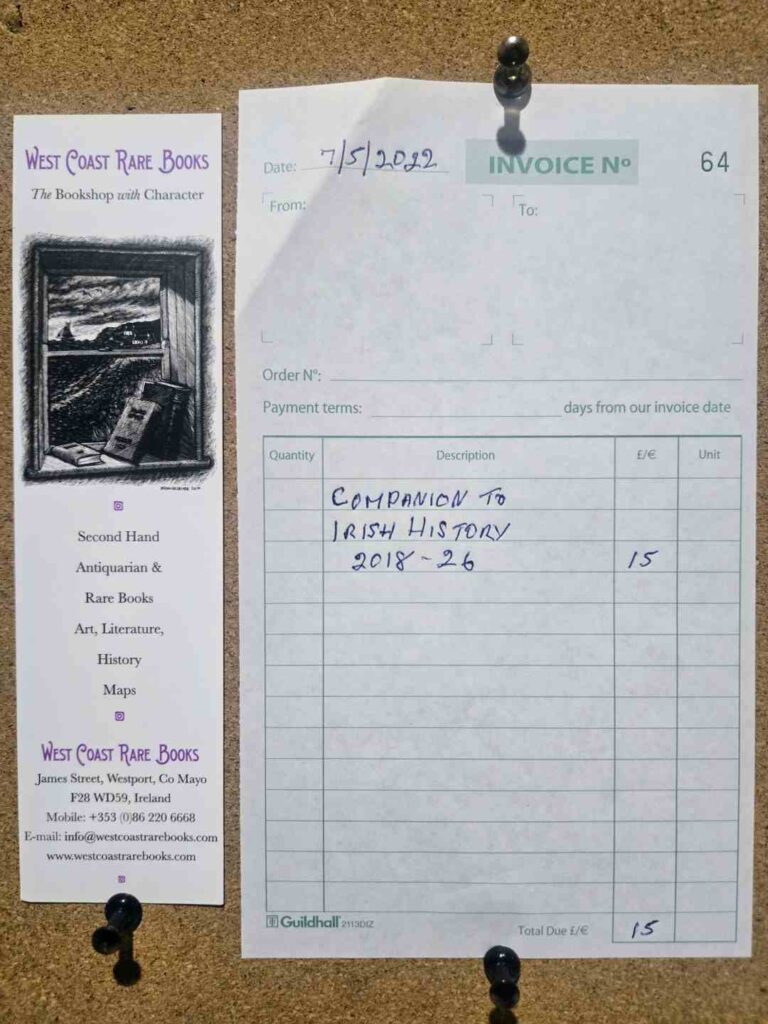 WEST COAST RARE BOOKS
The Bookshop with Character
Second Hand
Antiquarian &
Rare Books
Art, Literature,
History
Maps
WEST COAST RARE BOOKS
James Street, Westport, Co Mayo
F28 WD59, Ireland
Mobile: +353 (0)86 220 6668
E-mail: info@westcoastrarebooks.com
www.westcoastrarebooks.com
Date: 7/5/2022 INVOICE Nº 64
From: To:
Order Nº:
Payment terms: days from our invoice date
Quantity Description £/€ Unit
COMPANION TO
IRISH HISTORY
2018-26 15
Guildhall 2113DIZ
Total Due £/€ 15